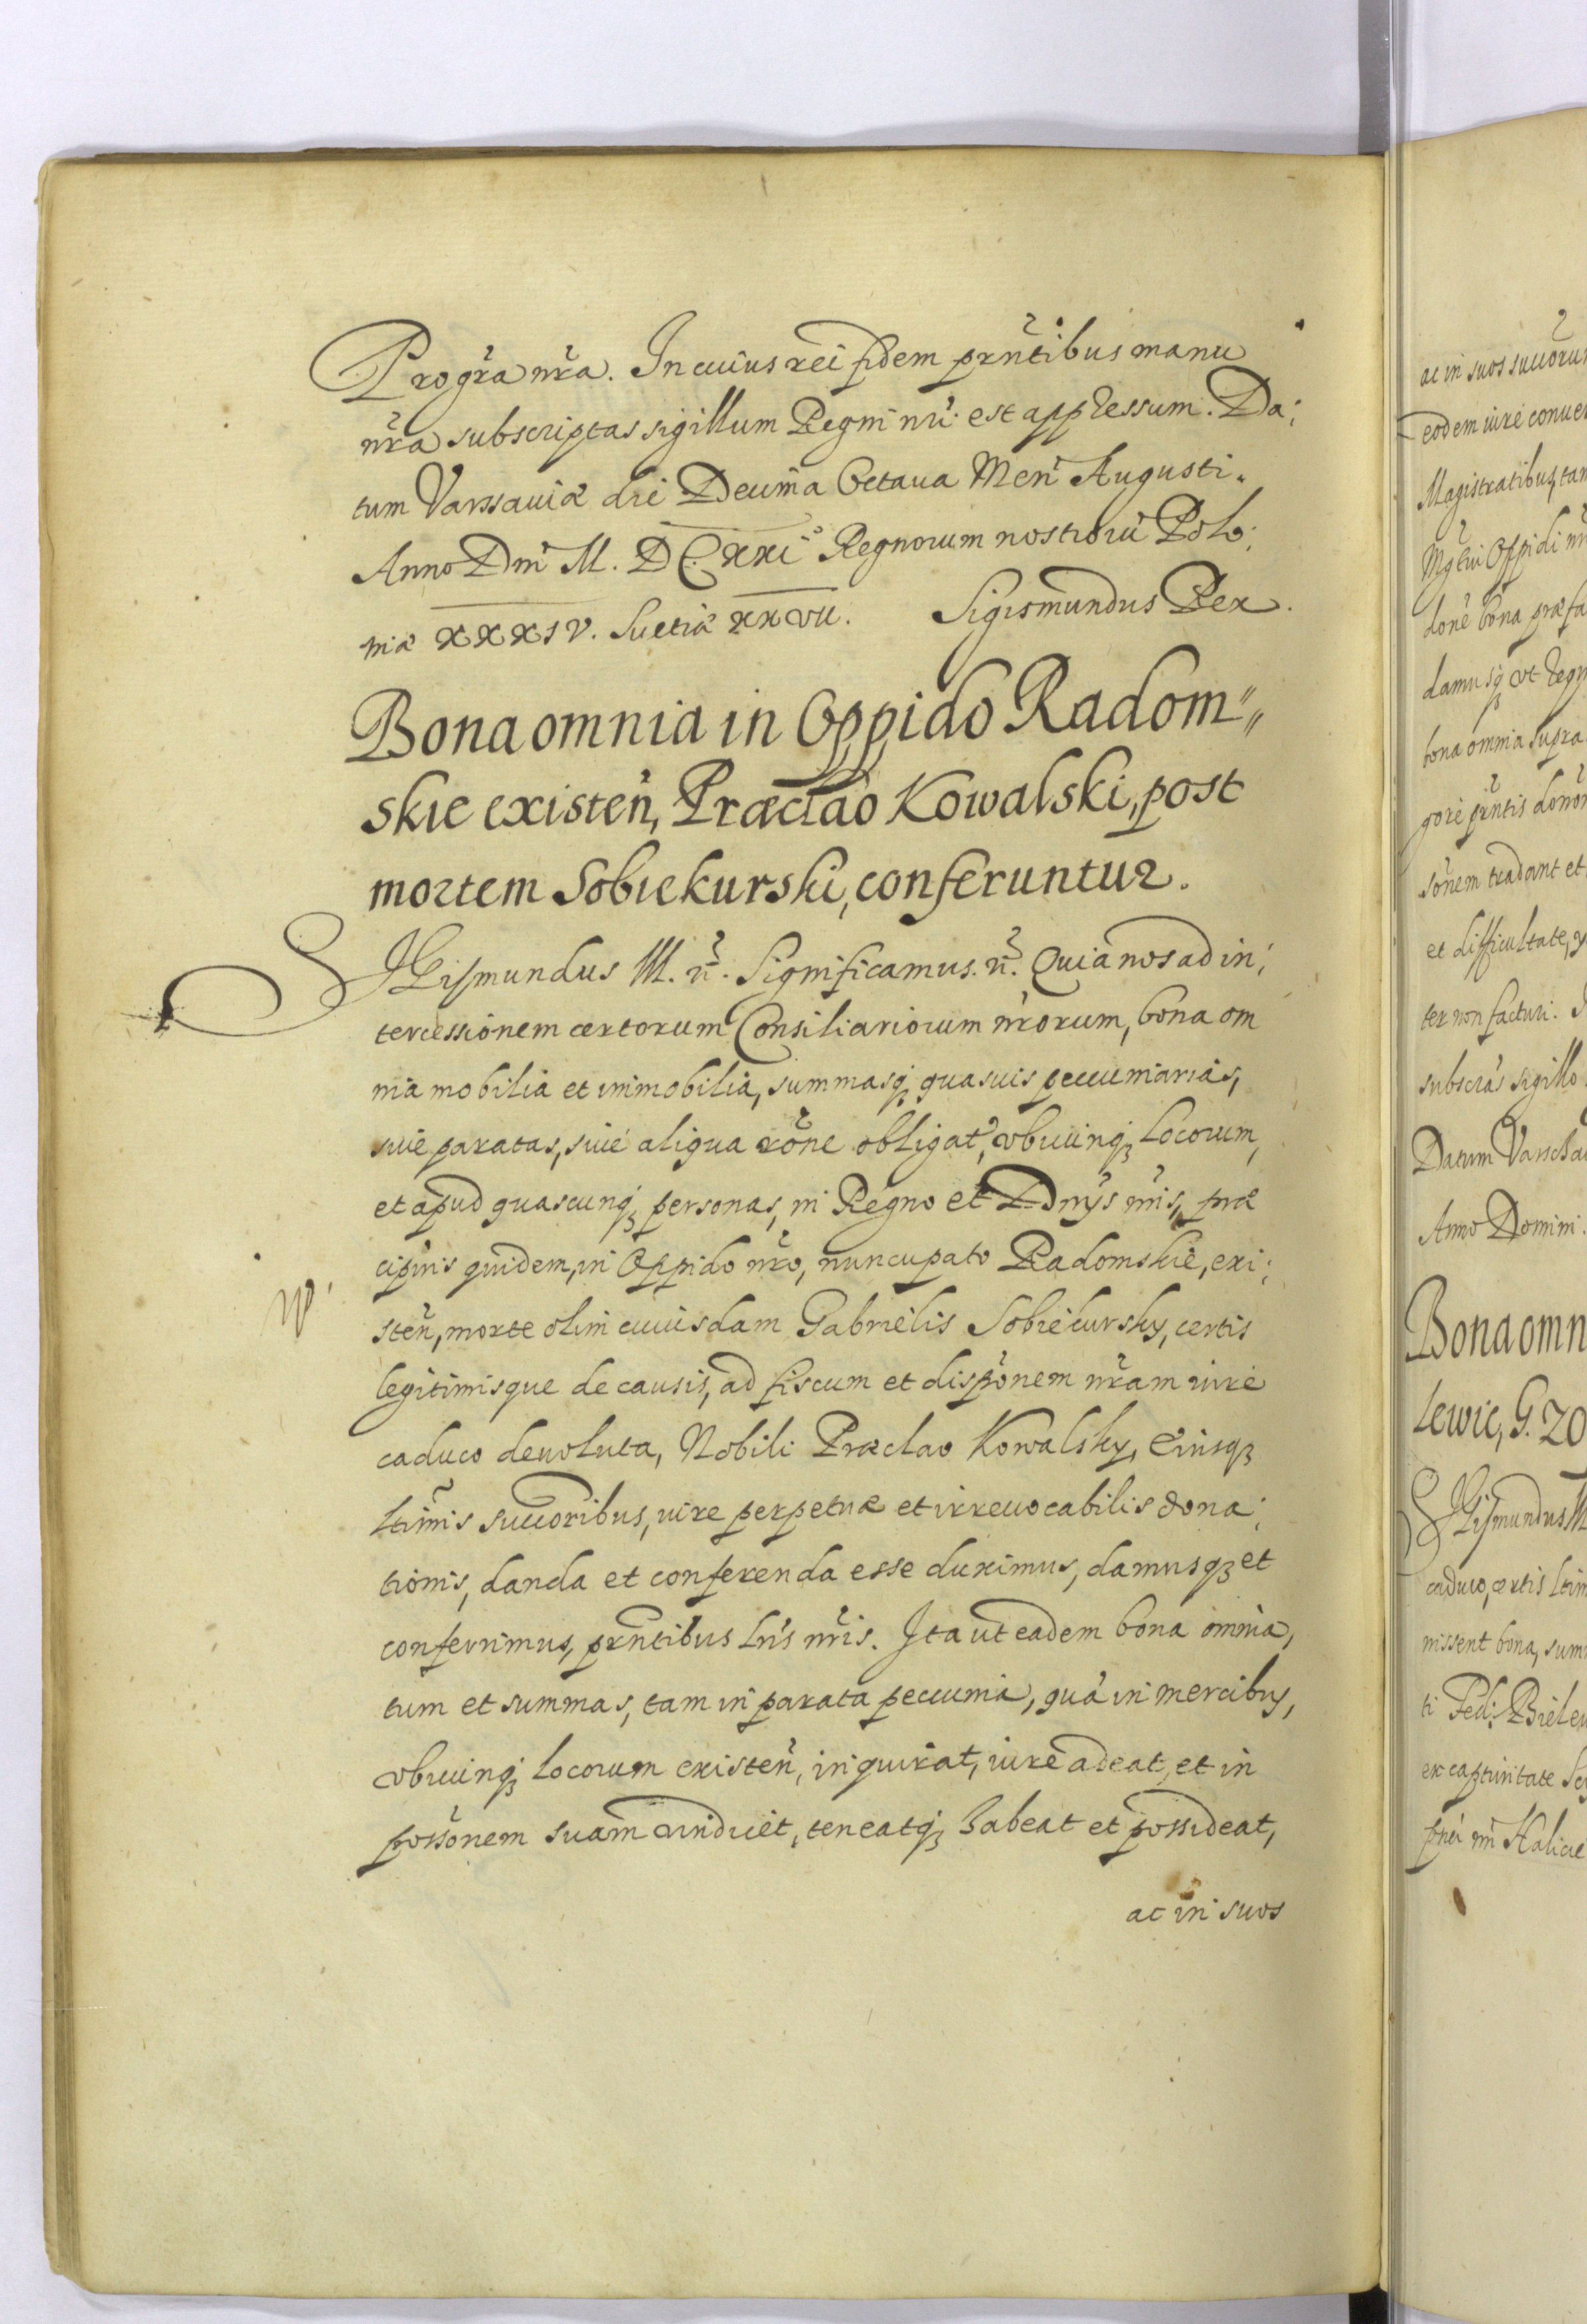 Pro gr̃a nr̃a. In cuius rei fidem prñtibus manu
nr̃a subscriptas sigillum Regni nri: est appressum. Da:
tum Varssauiæ die Decima Octaua Men Augusti.
Anno Dni M. DC. XXI° Regnorum nostrorū Polo:
niæ XXXIV. Suetiæ XXVII. Sigismundus Rex.
Bona omnia in Oppido Radom„
skie existeñ, Præclao Kowalski, post
mortem Sobiekurski, conferuntur.
SIGismundus III. ñ. Significamus. ñ. Quia nos ad in:
tercessionem certorum Consiliariorum nr̃orum, bona om
nia mobilia et immobilia, summasq; quasuis peccuniarias,
siue paratas, siue aliqua rõne obligat, vbicunq; locorum,
et apud quascunq; personas, in Regno et Dnÿs nr̃is, præ
cipuis quidem, in Oppido nr̃o, nuncupato Radomskie, exi:
steñ, morte olim cuiusdam Gabrielis Sobiekursky, certis
legitimisque de causis, ad fiscum et dispõnem nr̃am iure
caduco deuoluta, Nobili Præclao Kowalsky, Eiusq;
ltĩmis succoribus, iure perpetuæ et irreuocabilis dona:
tionis, danda et conferenda esse duximus, damusq; et
conferimus, prñtibus Lrĩs nr̃is. Ita ut eadem bona omnia,
tum et summas, tam in parata peccunia, quā in mercibus,
vbicunq; locorum existeñ, inquirat, iure adeat, et in
possõnem suam vindicet, teneatq; habeat et possideat,
ac in suos
ac in suos succoru
eodem iure conue
Magistratibus, tam
Mgtui Oppidi nr̃
donẽ bona præfa
damusq; vt
bona omnia supra
gore prñtis donõ
sõnem tradant et
et difficultate,
ter non facturi.
subscr̃as sigillo
Datum Varscha
Anno Domini.
Bona omn
lewic, G. 20
SIGismundus III
caduco, certis ltim
nissent bona, sum
ti Fed: Biele
ex captiuitate
Halicie